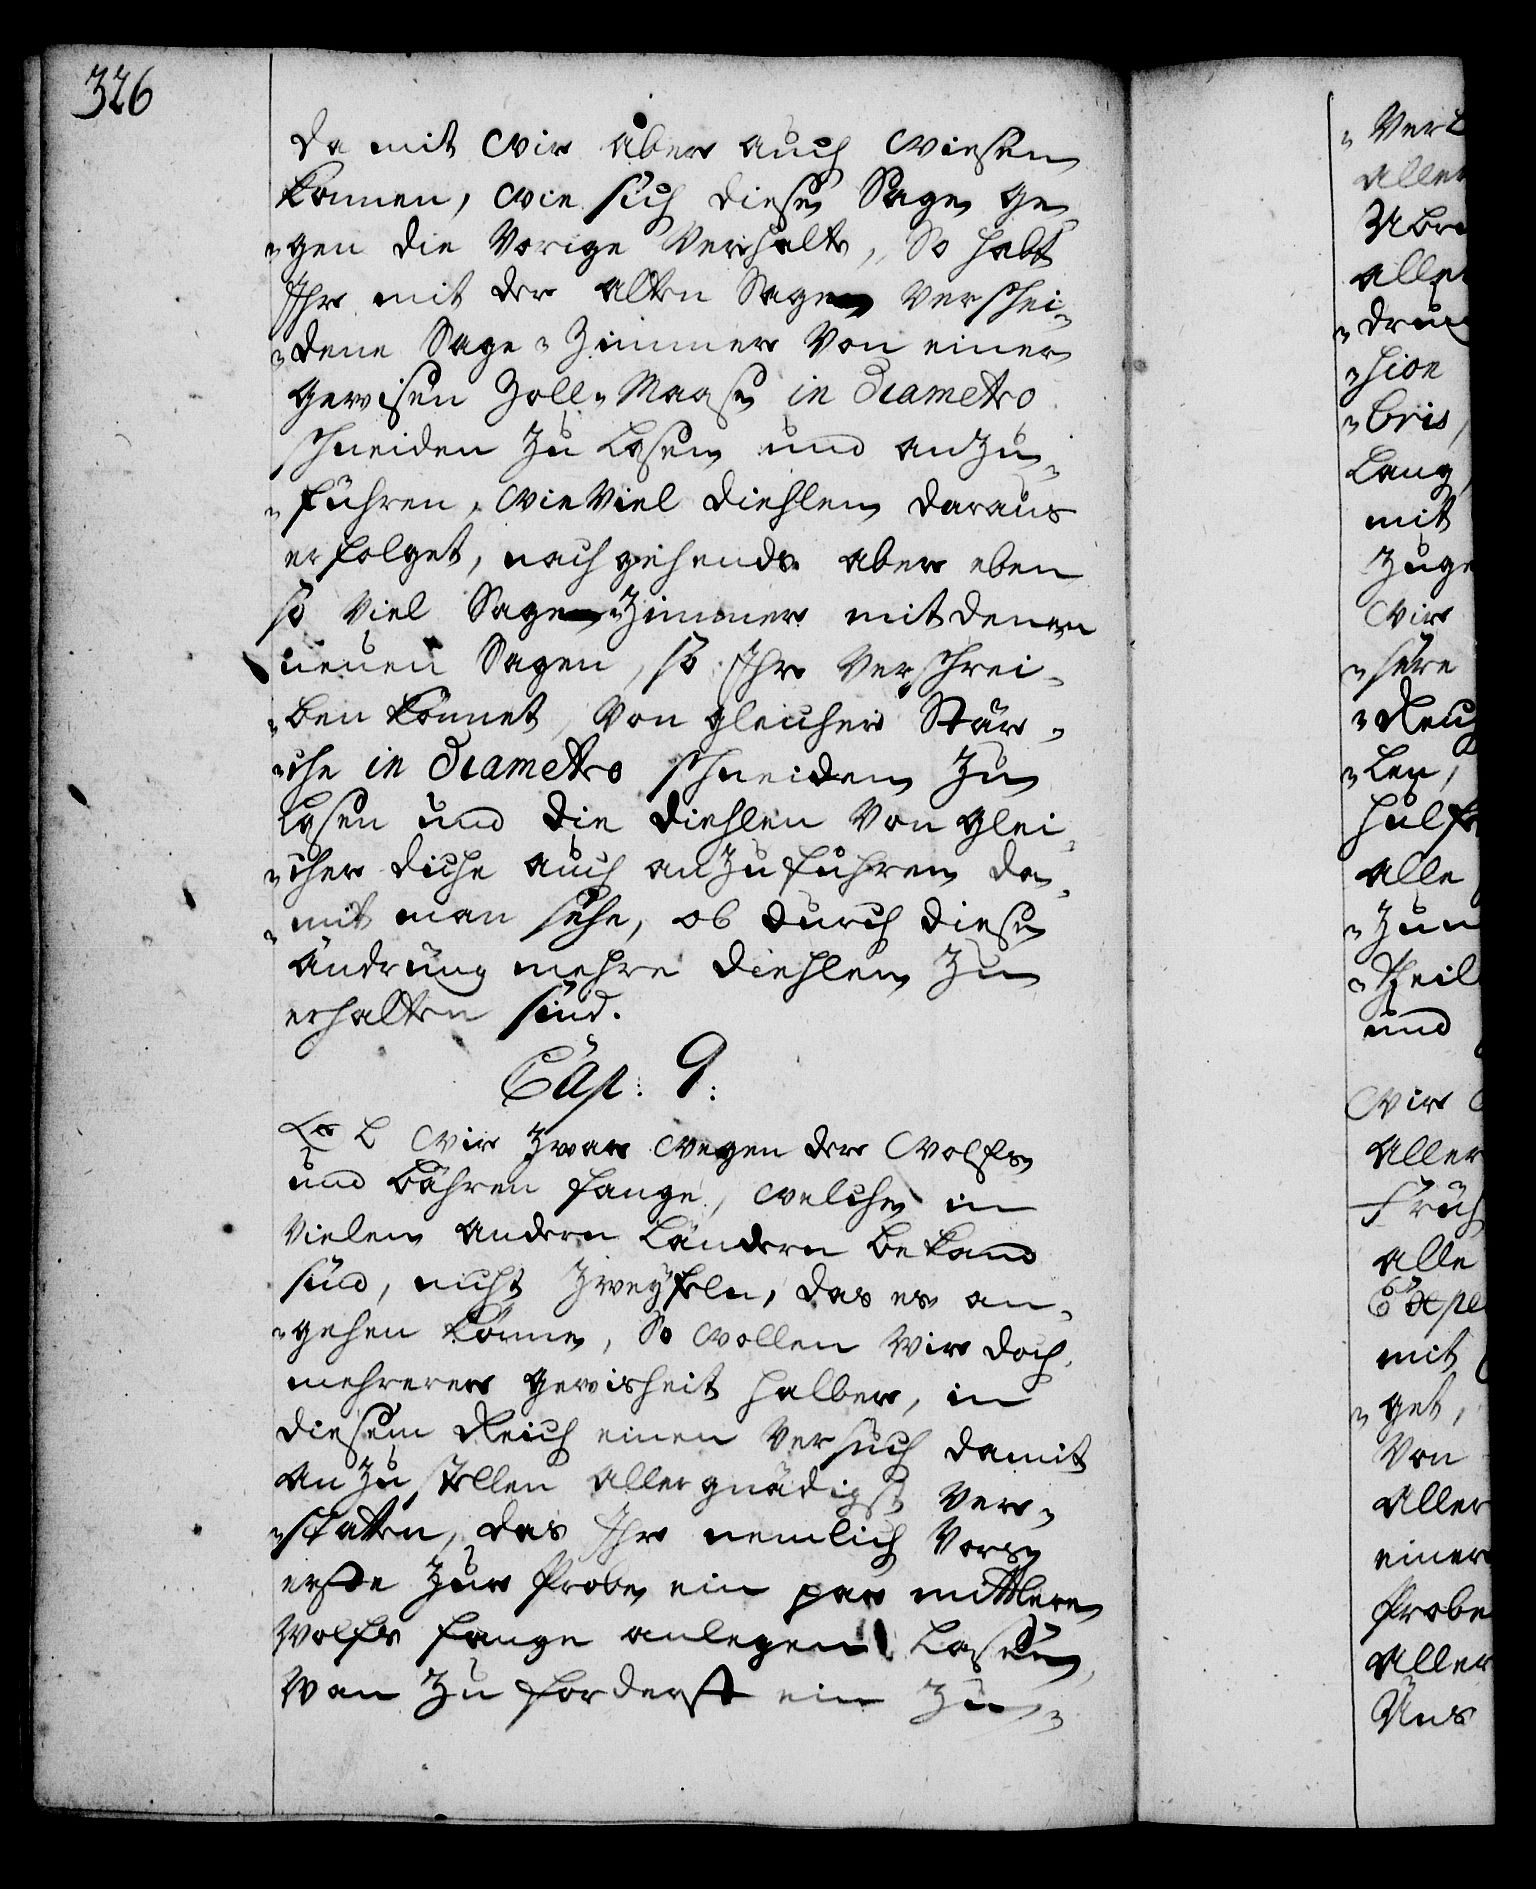 326
Da mit Wir aber auch Wiesen
konnen, Wie sich diese Sage ge„
„gen die Vorige Verhalte, So habt
Ihr mit der alten Sage Verschei„
„dene Sage„Zimmer Von einer
gewisen Zoll„Maase in Diametro
schneiden zu lasen und anzu„
„führen, Wie Viel Diehlen daraus
erfolget, nachgehends aber eben
so Viel Sage„Zimmer mit denen
neuen Sagen, so Ihr Verschrei„
„ben könnet, Von gleicher Stär„
„che in Diametro schneiden zu
lasen und die Diehlen Von glei„
„cher diche auch anzuführen da„
„mit man sehe, ob durch diese
Ändrung mehre Diehlen zu
erhalten sind.
Cap: 9:
Ob Wir zwar Wegen der Wolfs„
und Bähren fange, Welche in
Vielen andern Ländern bekand
sind, nicht zweyfeln, das es an„
„gehen könne, So Wollen Wir doch
mehrerer gewisheit halber, in
diesem Reich einen Versuch damit
anzustellen allergnädigst Ver„
„statten, das Ihr nemlich Vors
erste zur Probe ein par mittlere
Wolfs fange anlegen lasen,
Wan zu forderst ein zu„
„Verb
aller
Ubri
aller
„drung
„sion
„bris,
Lang,
mit
Zuge
Wir
„sere
„Reich
„len,
hulfe
alle
„zun
„theil
und
Wir
Aller
Früh
alle
Expe
mit
„get,
Von
Aller
einer
Probe
Aller
Uns